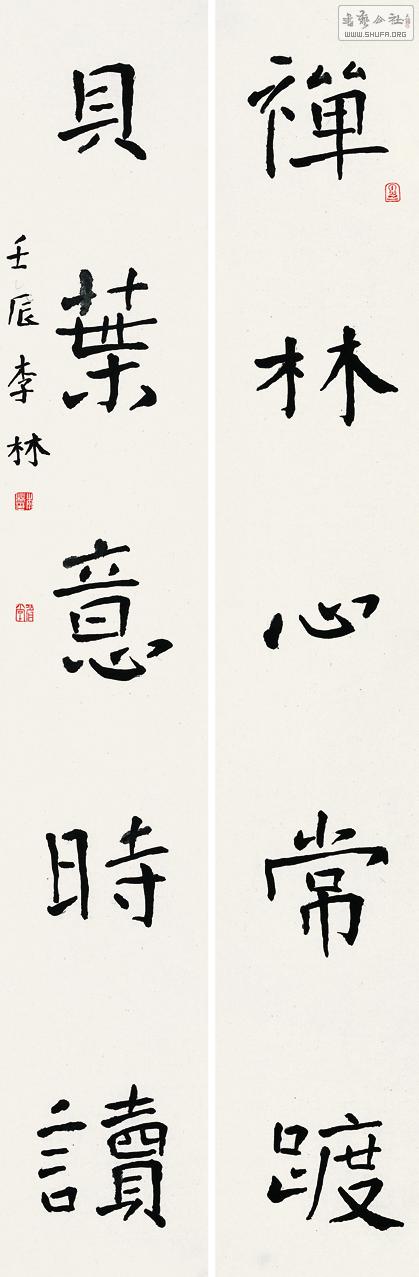 禪林心常踱
貝葉意時讀
壬辰李林
書藝公社
WWW.SHUFA.ORG